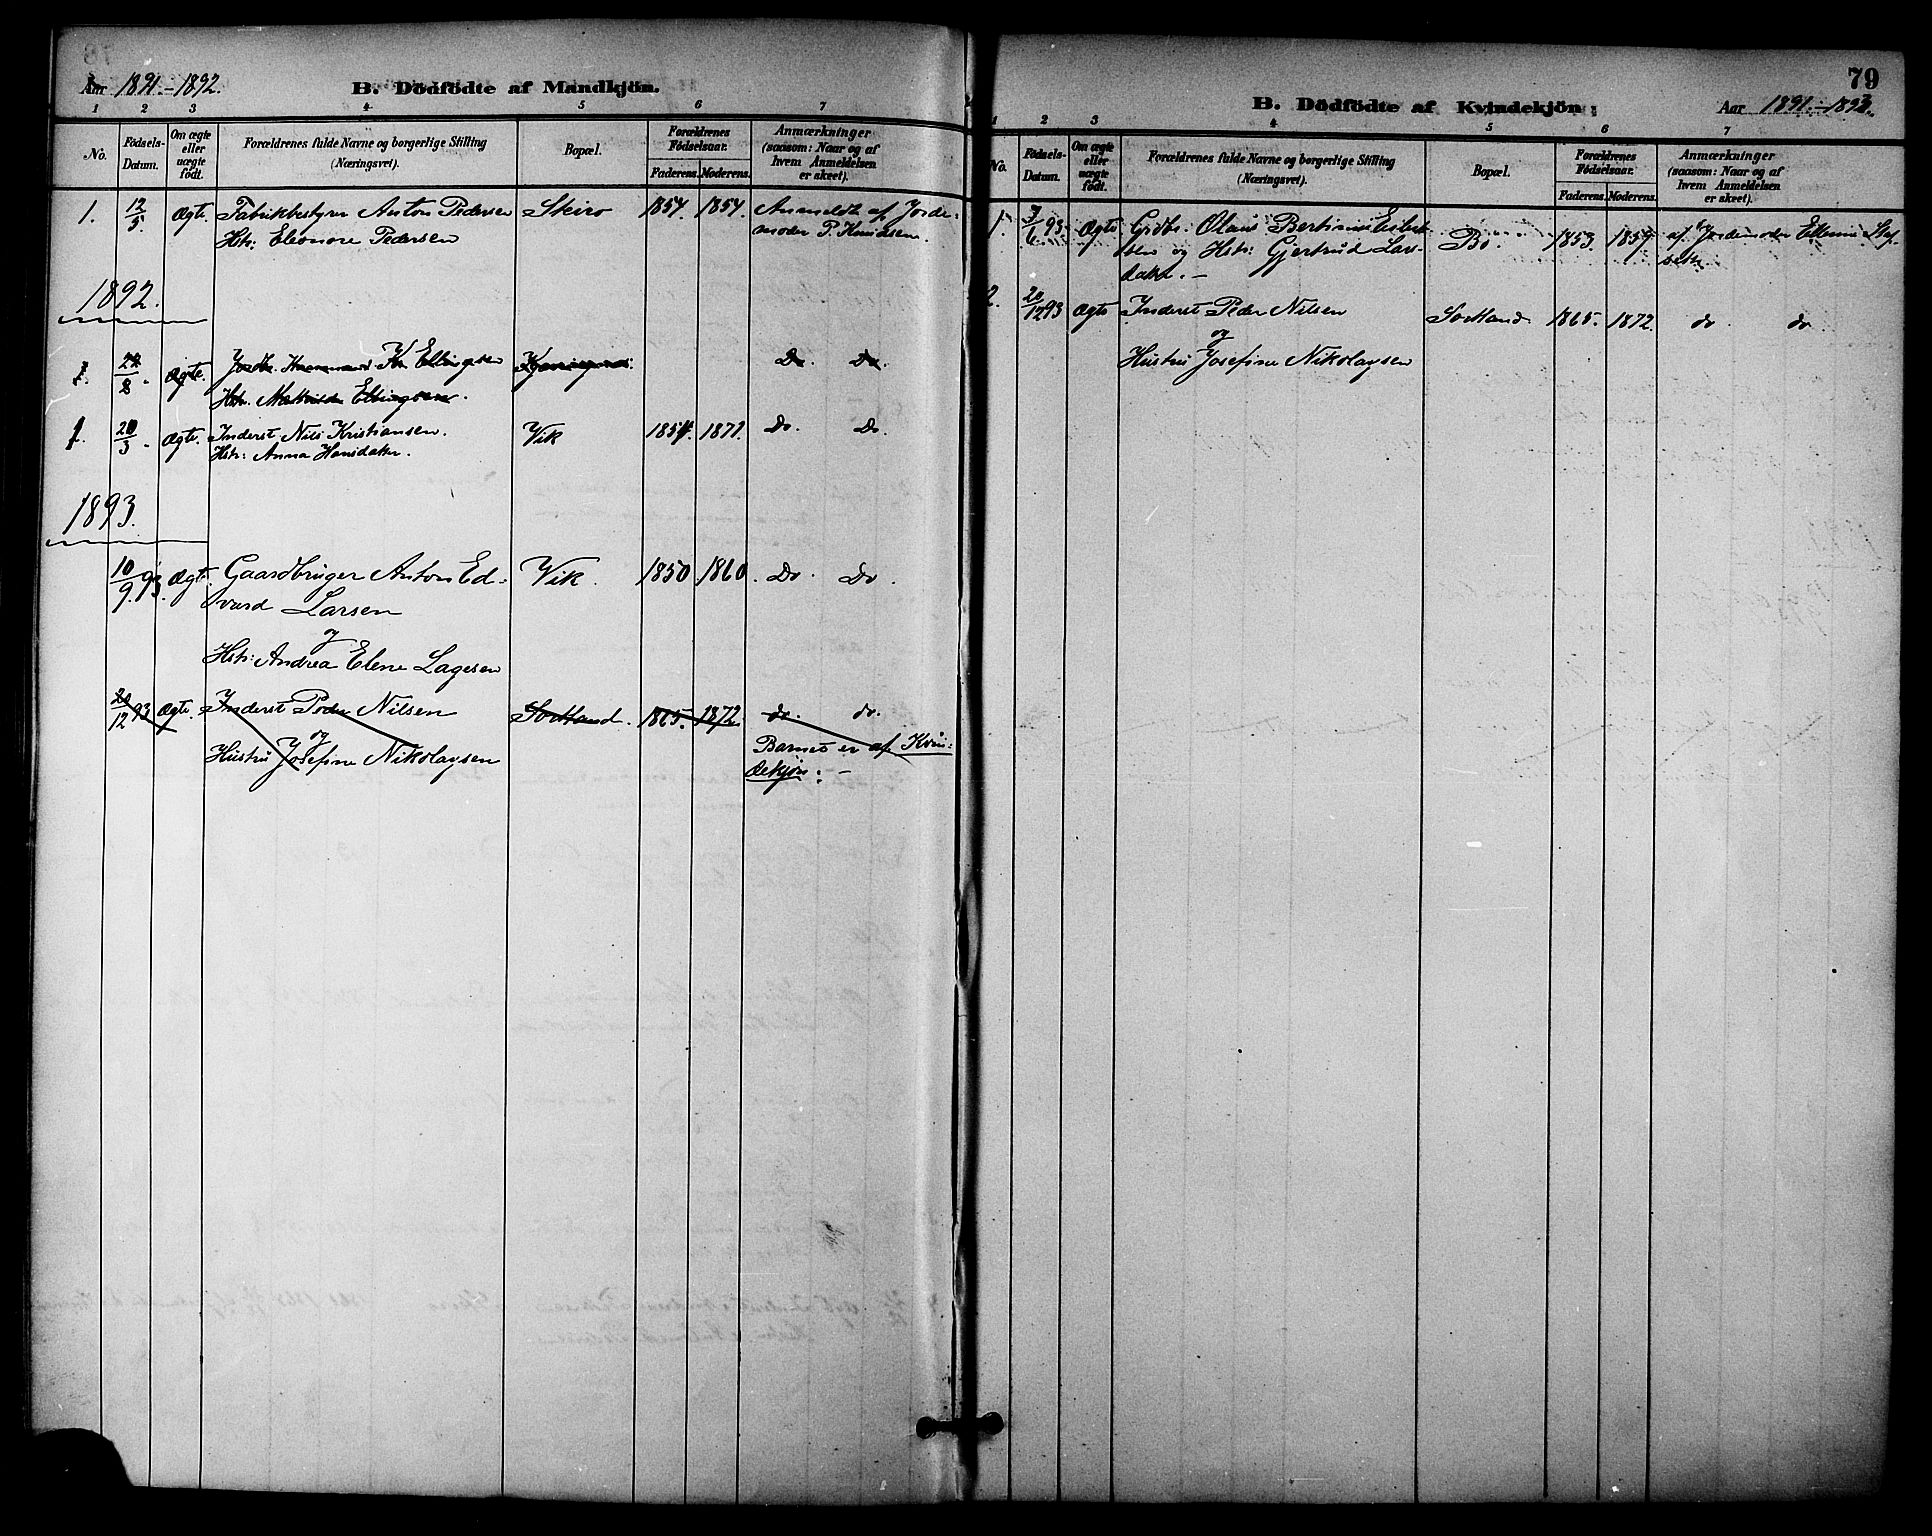 Aar 1891.-1892.
B. Dödfödte af Mandkjön.
1 2 3 4 5 6 7
No.
Födsels-Datum.
Om ægte eller uægte födt.
Forældrenes fulde Navne og borgerlige Stilling (Næringsvei).
Bopæl.
Forældrenes Födselsaar.
Faderens. Moderens.
Anmærkninger (saasom: Naar og af hvem Anmeldelsen er skeet).
1. 12/5 Ægte. Fabrikbestyrer Anton Pedersen Skeiro 1854. 1854. Anmeldt af Jorde-
Hstr: Eleonore Pedersen moder P. Knudsen.
1892.
1. 8. Ægte. Ellingsen Do. Do.
Hstr. Mathilde Ellingsen.
1. 20/3. Ægte. Inderst Nils Kristiansen. Vik 1854. 1871. Do. Do.
Hstr: Anna Hansdatter.
1893.
10/9.93. Ægte. Gaardbruger Anton Ed- Vik. 1850. 1860. Do. Do.
vard Larsen
og
Hstr: Andrea Elene Lagesen
20/12 93 Ægte. Inderst Peder Nilsen Sortland. 1865. 1872. do. do.
og
Hustru Josefine Nikolaysen
Barnet er af Kvin-
dekjön: -
79
B. Dödfödte af Kvindekjön;
Aar 1891.-1893.
1 2 3 4 5 6 7
No.
Födsels-Datum.
Om ægte eller uægte födt.
Forældrenes fulde Navne og borgerlige Stilling (Næringsvei).
Bopæl.
Forældrenes Födselsaar.
Faderens. Moderens.
Anmærkninger (saasom: Naar og af hvem Anmeldelsen er skeet).
1. 7/6 93. Ægte Grdbr: Olaus Bertinus Bö 1853. 1857. af Jordemoder
og Hstr: Gjertrud Lars-
datter. -
2. 20/12 93 Ægte Inderst Peder Nilsen Sortland 1865. 1872. do do
og
Hustru Josefine Nikolaysen